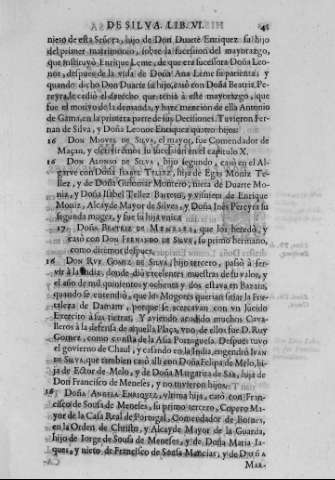 DE SILVA. LIB. VI. 45
nieto de esta Señora, hijo de Don Duarte Enriquez su hijo
del primer matrimonio, sobre la sucesion del mayorazgo,
que instituyò Enrique Leme, de que era sucesora Doña Leo-
nor, despues de la vida de Doña Ana Leme su parienta; y
quando dicho Don Duarte su hijo, casò con Doña Beatriz Pe-
reyra, le cediò el derecho que tenia à este mayorazgo, que
fue el motivo de la demanda, y haze mencion de ella Antonio
de Gama, en la primera parte de sus Decisiones. Tuvieron Fer-
nan de Silva, y Doña Leonor Enriquez quatro hijos:
16 DON MIGUEL DE SILVA, el mayor, fue Comendador
de Maçan, y escriviremos su sucesion en el capitulo X.
16 DON ALONSO DE SILVA, hijo segundo, casò en el Al-
garve con DOÑA ISABEL TELLEZ, hija de Egas Moniz Te-
llez, y de Doña Guiomar Montero, nieta de Duarte Mo-
niz, y Doña Isabel Tellez Barreto, y visnieta de Enrique
Moniz, Alcayde Mayor de Silves, y Doña Inès Pereyra su
segunda muger, y fue su hija vnica
17. DOÑA BEATRIZ DE que los heredò, y
casò con DON FERNANDO DE SILVA, su primo hermano,
como diremos despues.
16 DON RUY GOMEZ DE SILVA, hijo tercero, pasò à ser-
vir à la India, donde diò excelentes muestras de su valor, y
el año de mil quinientos y ochenta y dos estava en Bazain,
quando se entendiò, que los Mogores querian sitiar la For-
taleza de Damam, porque se acercavan con vn lucido
Exercito à sus tierras. Y aviendo acudido muchos Cava-
lleros à la defensa de aquella Plaça, vno de ellos fue D. Ruy
Gomez, como consta de la Asia Portuguesa. Despues tuvo
el governo de Chaul, y casando en la India, engendrò IVAN
DE SILVA, que tambien casò allì con Doña Felipa de Melo, hi-
ja de Estor de Melo, y de Doña Margarita de Saa, hija de
Don Francisco de Meneses, y no tuvieron hijos.
16 DOÑA ANDREA ENRIQUEZ, vltima hija, casò con Fran-
cisco de Sousa de Meneses, su primo tercero, Copero Ma-
yor de la Casa Real de Portugal, Comendador de Bornes,
en la Orden de Christo, y Alcayde Mayor de la Guarda,
hijo de Jorge de Sousa de Meneses, y de Doña Maria Ja-
ques, y nieto de Francisco de Sousa Mancias, y de DOÑA
MAR-